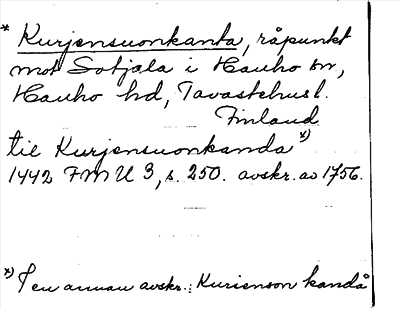 * Kurjensuonkanta, råpunkt
mot Sotjala i Hauho sn,
Hauho hd, Tavastehusl.
Finland
till Kurjensuonkanda x)
1442 FMU 3, s. 250. avskr. av 1756.
x) I en annan avskr.: Kurienson kandå